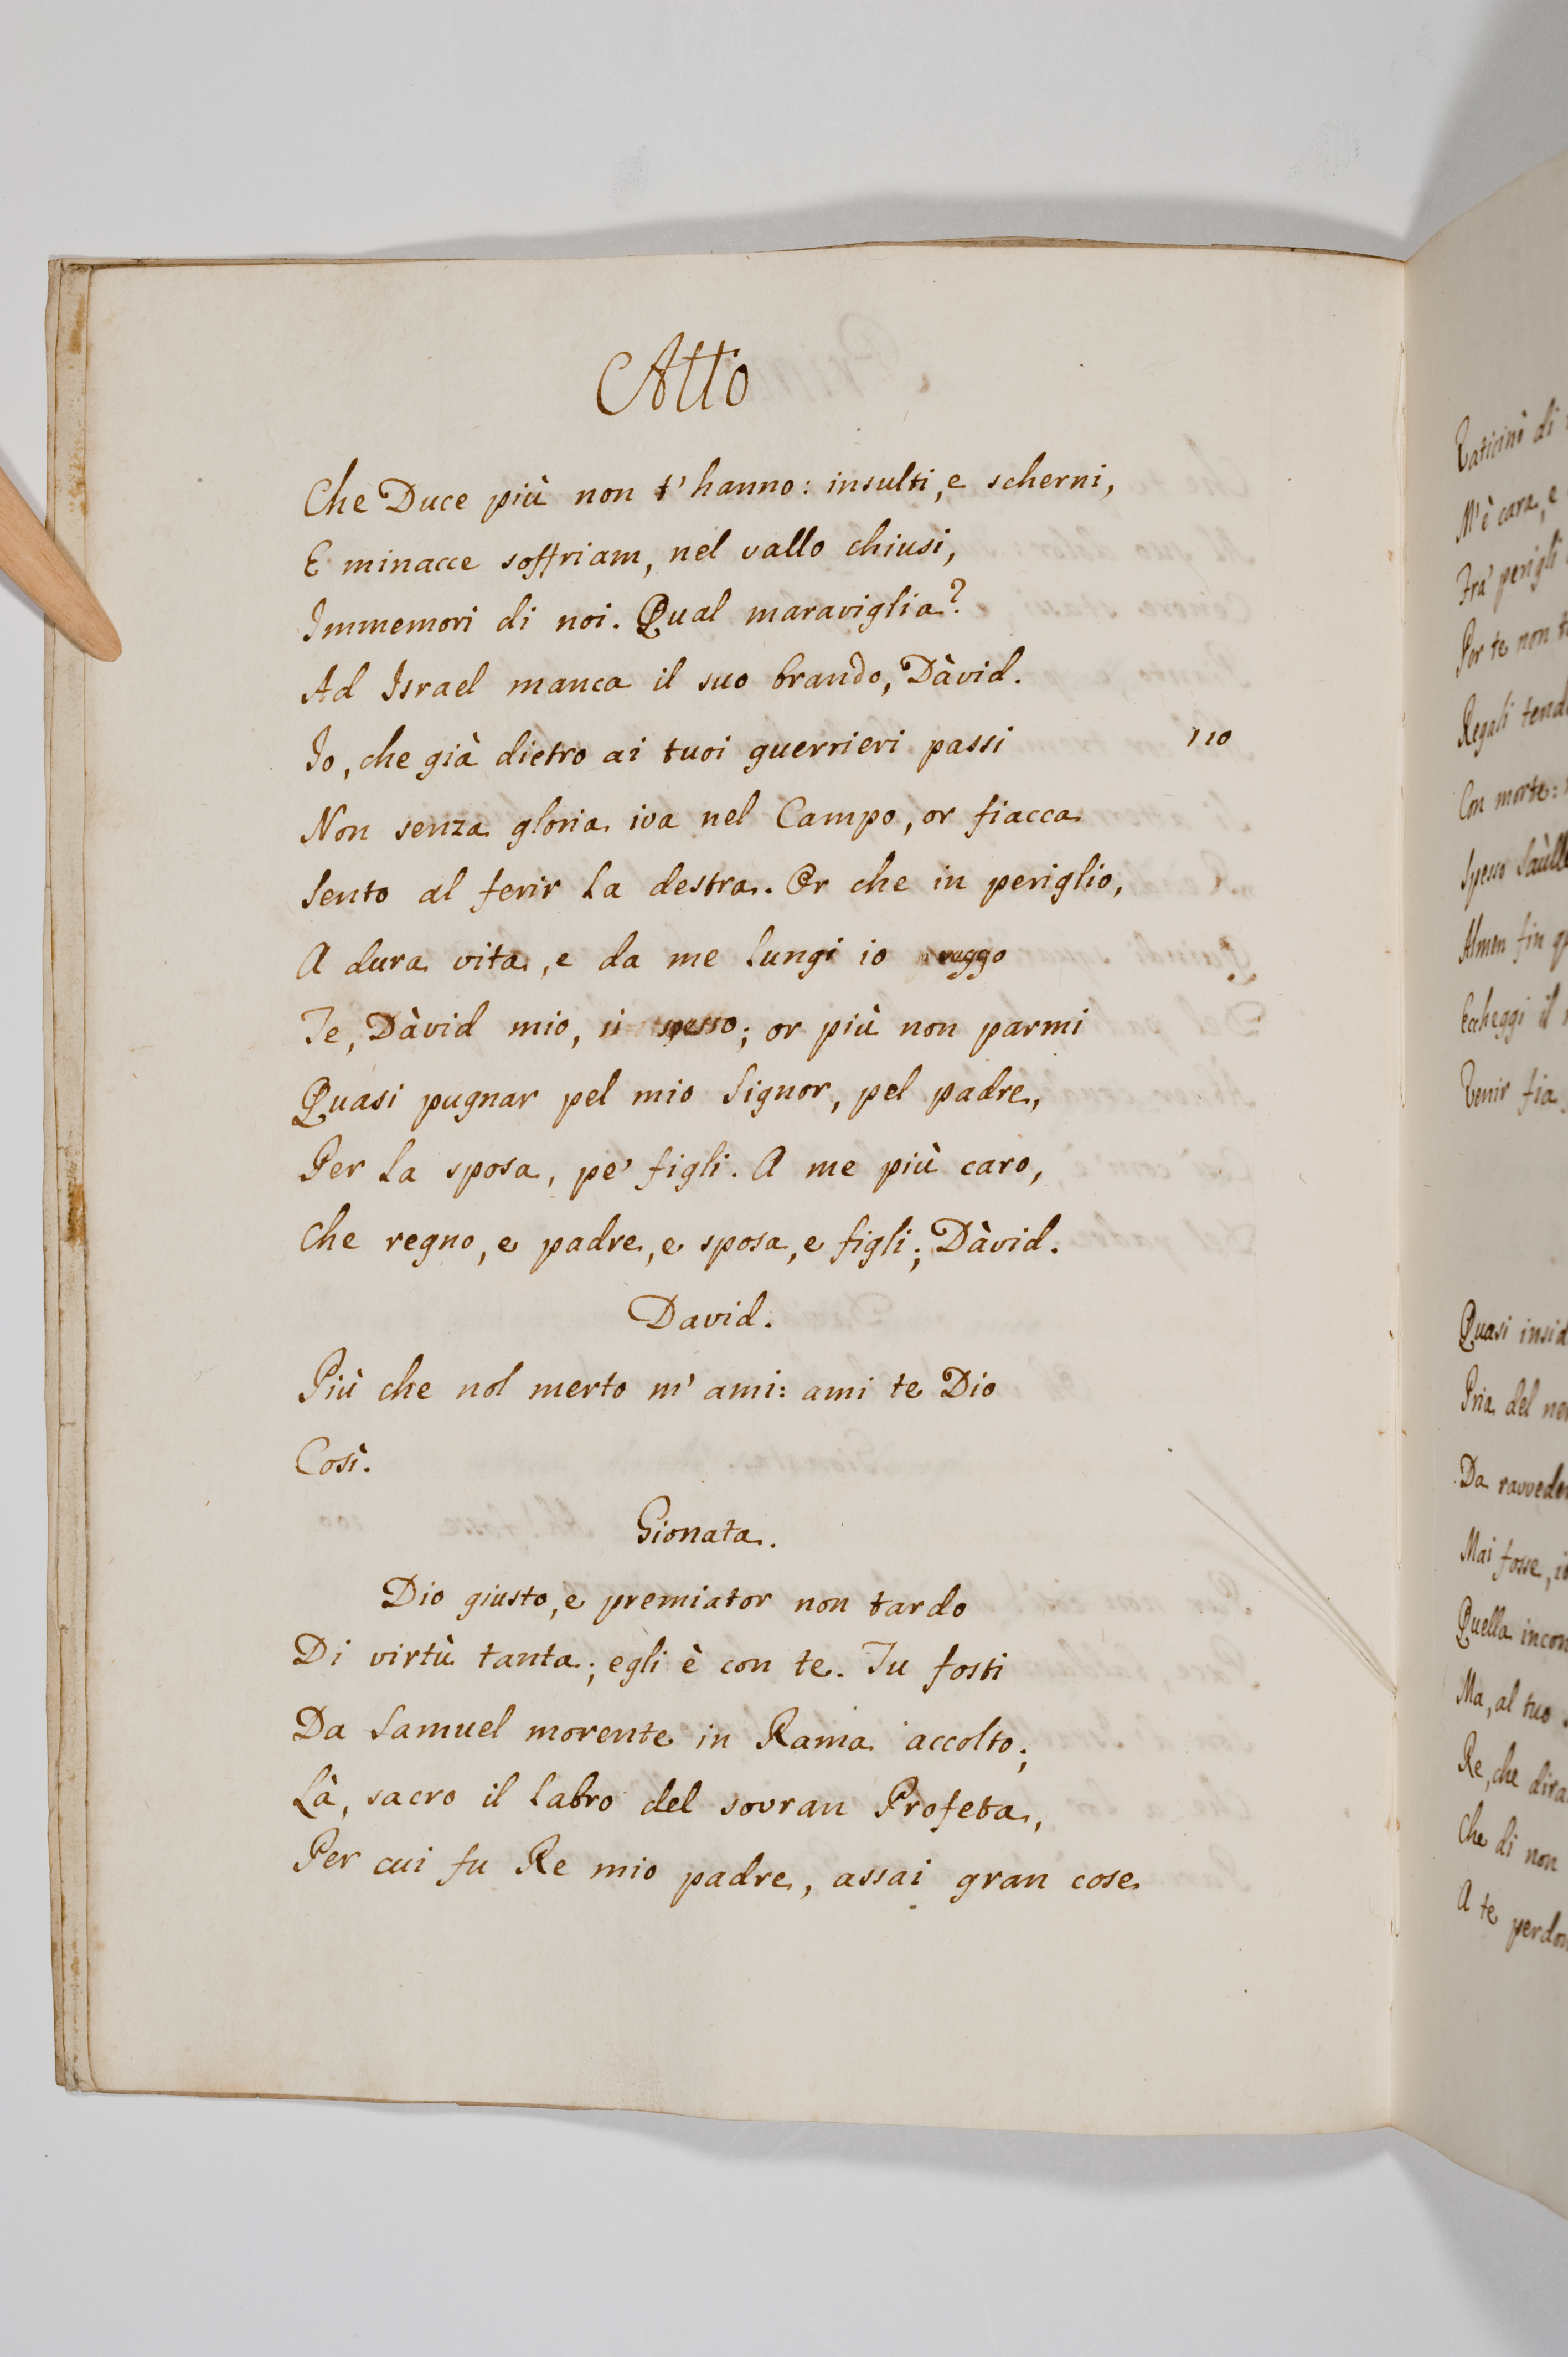 Atto
Che Duce più non t'hanno: insulti, e scherni,
E minacce soffriam, nel vallo chiusi,
Immemori di noi. Qual maraviglia?
Ad Israel manca il suo brando, Dàvid.
Io, che già dietro ai tuoi guerrieri passi 110
Non senza gloria iva nel Campo, or fiacca
Sento al ferir la destra. Or che in periglio,
A dura vita, e da me lungi io veggo
Te, Dàvid mio, sì spesso; or più non parmi
Quasi pugnar pel mio Signor, pel padre,
Per la sposa, pe' figli. A me più caro,
Che regno, e padre, e sposa, e figli; Dàvid.
David.
Più che nol merto m'ami: ami te Dio
Così.
Gionata.
Dio giusto, e premiator non tardo
Di virtù tanta; egli è con te. Tu fosti
Da Samuel morente in Rama accolto;
Là, sacro il labro del sovran Profeta,
Per cui fu Re mio padre, assai gran cose
Vaticinò di
M'è cara, e
Fra' perigli
Per te non
Regali
Con morte:
Spesso
Almen fin
Echeggi il
Venir fia
Quasi
Pria del
Da
Mai fosse,
Quella
Ma, al tuo
Re, che
Che di non
A te